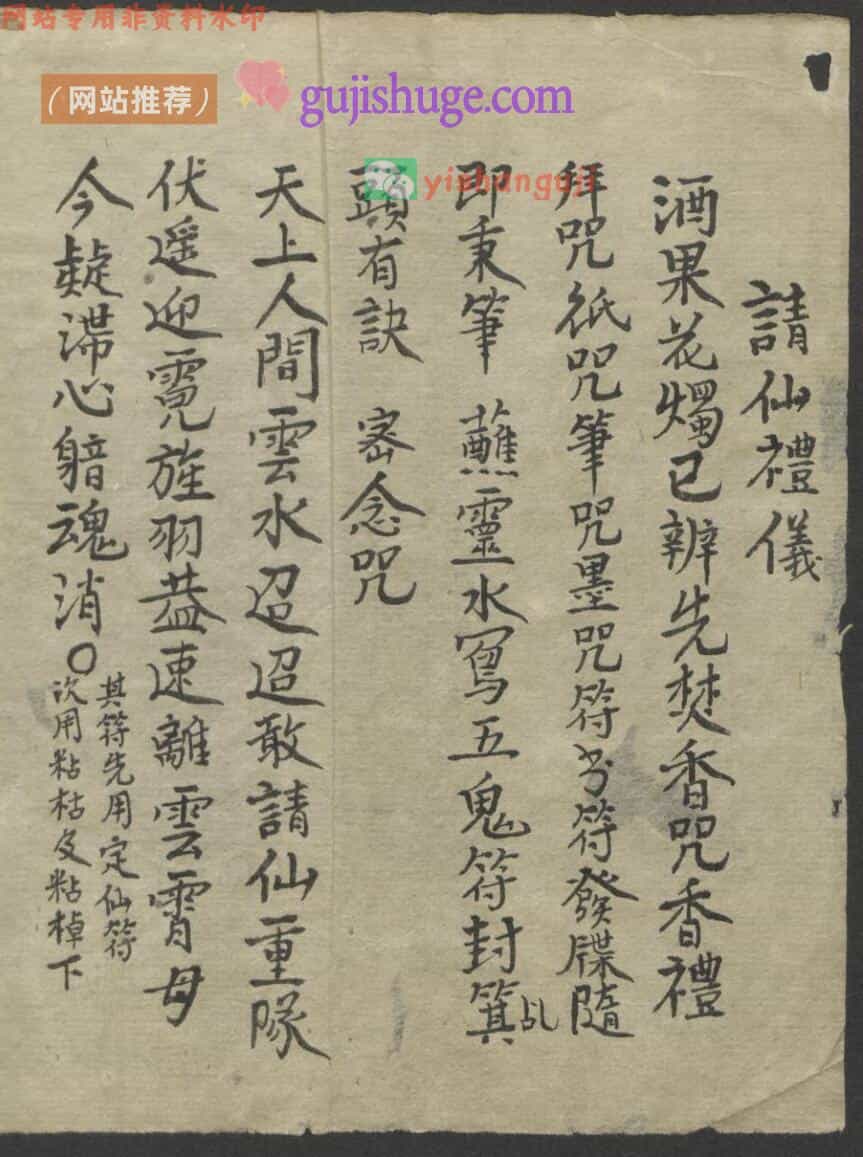 网站专用非资料水印
（网站推荐）
gujishuge.com
yishanguji
請仙禮儀
酒果花燭已辦先焚香咒香禮
拜咒紙咒筆咒墨咒符书符發牒隨
即秉筆蘸靈水寫五鬼符封箕乩
頭有訣 密念咒
天上人間雲水迢迢敢請仙重隊
伏遥迎霓旌羽蓋速離雲霄毋
今疑滞心暗魂消〇
其符先用定仙符
次用粘枯皮粘棹下